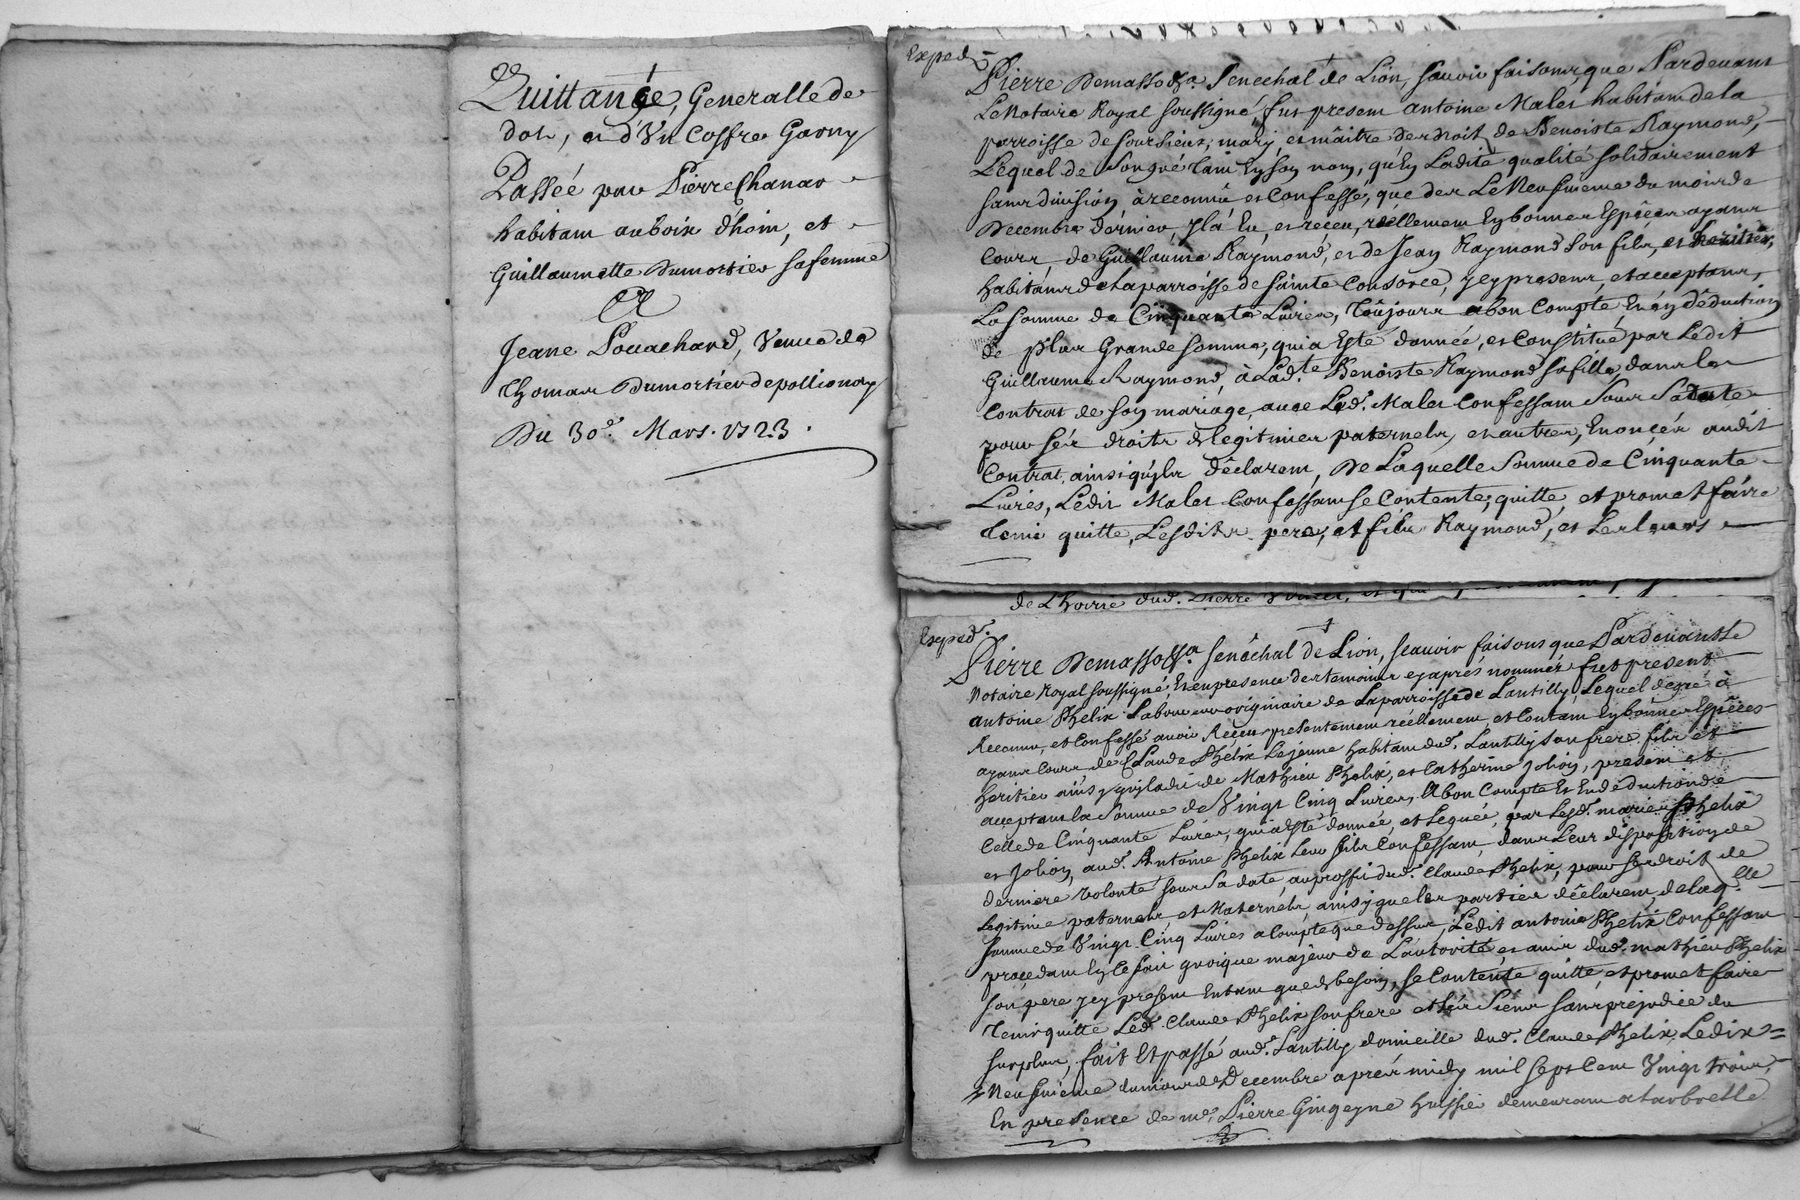 Quittance, Generalle de
dot, et d'Un Coffre Garny
Passée par Pierre Chanav
habitant au bois d'hoin, et
Guillaumette Dumortier sa femme
A
Jeane Pouachard, Veuve de
Thomas Dumortier de pollionay
Du 30e. Mars. 1723.
Exped.
Pierre Demasso &a. Senechal de Lion, scavoir faisons que Pardevant
Le Notaire Royal soussigné, fut present antoine Malet habitant de la
parroisse de Soursieux, mary, et maitre des droit de Benoiste Raymond,
Lequel de son gré tant en son nom, qu'en Ladite qualité solidairement
sans division, à reconnü et Confessé, que des Le Neufvieme du mois de
Decembre dernier, Il á Eu, et receu, réellement En bonnes Espèces ayant
Cours, de Guillaume Raymond, et de Jean Raymond son fils, et heritier,
habitants de la parroisse de Sainte Consorce, icy presents, et acceptans,
La somme de Cinquante Livres, Toujours a bon Compte, En déduction
de plus Grande somme, qui a Esté donnée, et Constitué par Ledit
Guillaume Raymond, à Lad.te Benoiste Raymond sa fille, dans le
Contrat de son mariage avec Led. Malet Confessant sous sa datte
pour ses droits de legitimes paternels, et autres, Enoncés audit
Contrat, ainsi qu'ils déclarent, De Laquelle Somme de Cinquante
Livres, Ledit Malet Confessant se Contente, quitte, et promet faire
tenir quitte, Lesdits pere, et fils Raymond, et les leurs
de L'hoirie dud. Pierre
Exped.
Pierre Demasso &a Senéchal de Lion, scavoir faisons que Pardevant Le
Notaire Royal soussigné, En presence des temoins cy aprés nommés fut present
antoine Phelix Laboureur originaire de La parroisse de Lantilly, Lequel de gré à
Reconnu, et Confessé avoir Receu presentement réellement, et Contant En bonnes Espêces
ayant Cours de Claude Phelix Lejeune habitant dud. Lantilly son frere fils et
heritier ainsy qu'il a dit de Mathieu Phelix, et Catherine Jolion, present et
acceptant la Somme de Vingt Cinq Livres, A bon Compte Et En deduction de
Celle de Cinquante Livres, qui a Esté donnée, et Leguée, par Lesd. mariés Phelix
et Jolion, aud. Antoine Phelix Leur fils Confessant, dans Leur disposition de
derniere Volonté sous sa date, au proffit dud. Claude Phelix, pour ses droit de
Legitime paternels et Maternels, ainsy que les parties déclarent, de laq.lle
Somme de Vingt Cinq Livres a Compte que dessus, Ledit antoine Phelix Confessant
procedant En Ce fait quoique majeur de L'autorité, et avis dud. mathieu Phelix
son pere icy present Entant que de besoin, se Contente quitte, et promet faire
Tenir quitte Led. Claude Phelix son frere et les Siens sans prejudice du
surplus, fait Et passé aud. Lantilly domicille dud. Claude Phelix Le dix=
Neufvieme du mois de Decembre aprés midy mil sept Cent Vingt trois,
En presence de me. Pierre Gingeyne huissier demeurant a Larbrelle